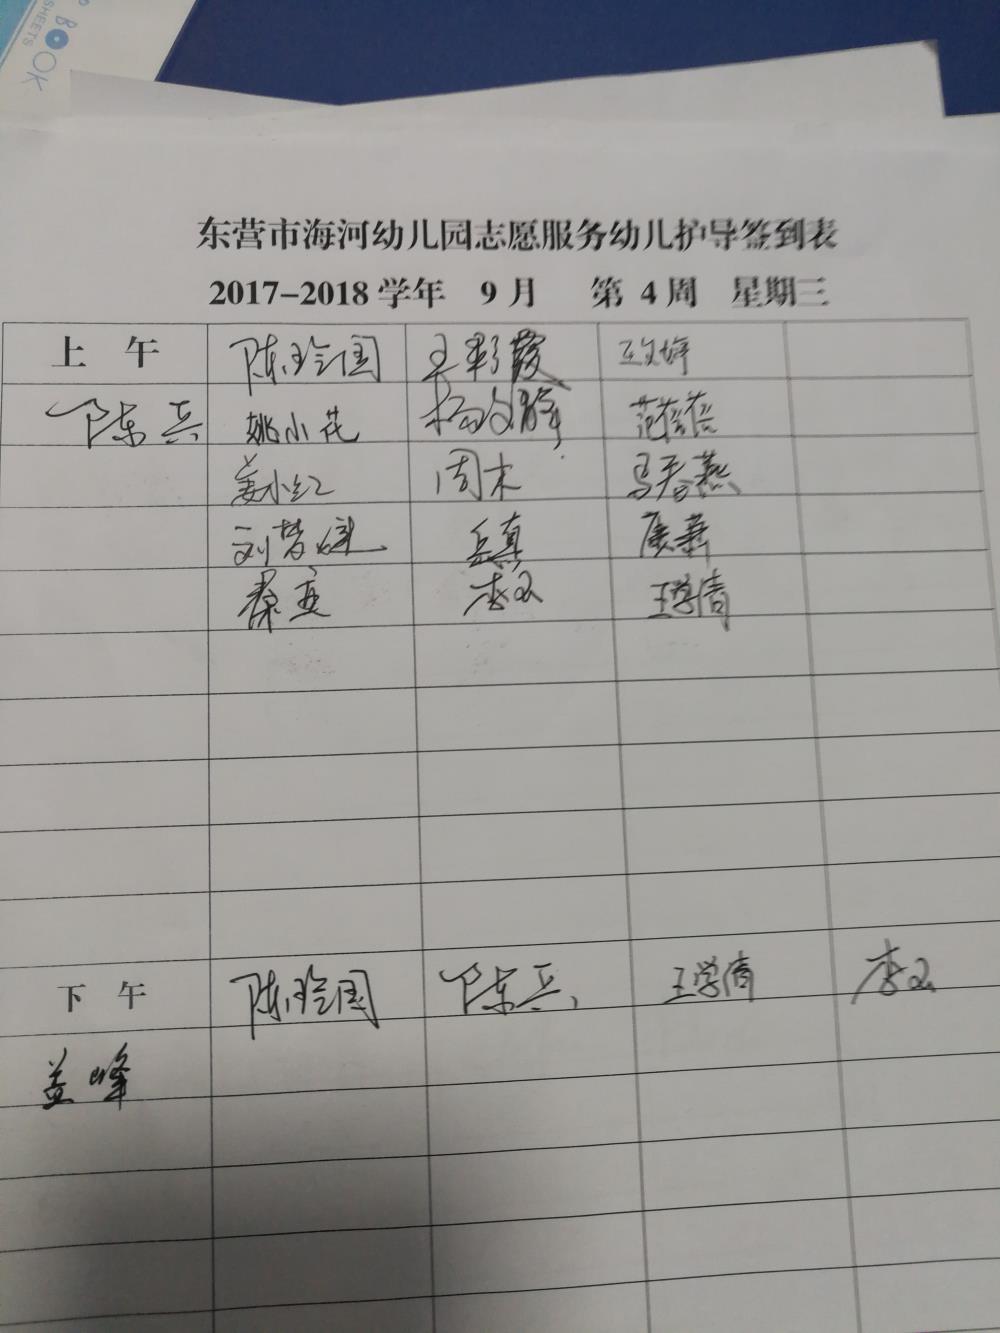 BOOK
SHEETS
东营市海河幼儿园志愿服务幼儿护导签到表
2017-2018学年 9月 第 4周 星期三
上 午 陈玲国 王彩霞 王文婷
陈兵 姚小花 杨文辉 范蓓蓓
姜小红 周木 马春燕
刘梦 岳真 康燕
秦亚 李文 王学倩
下 午 陈玲国 陈兵 王学倩 李文
盖峰